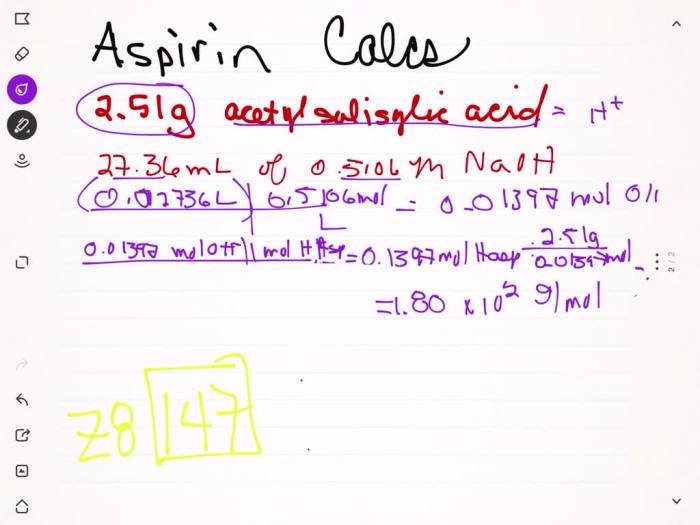 Aspirin Calcs
2.51g acetylsalisylic acid = H+
27.36mL of 0.5106 M NaOH
(0.02736L) 0.5106mol = 0.01397 mol OH
L
0.01397 molOH 1 mol HAsp = 0.1397mol Hasp 2.51g
0.01397mol
=1.80 x10² g/mol
Z8 147
2 / 2